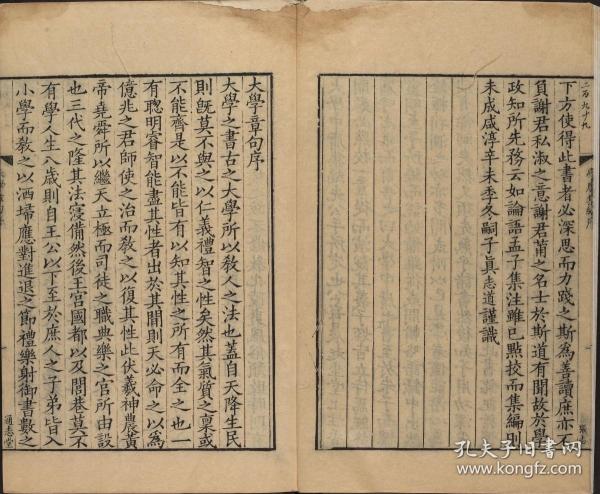 下方使得此書者必深思而力踐之斯為善讀庶亦不
負謝君私淑之意謝君莆之名士於斯道有聞故於學
政知所先務云如論語孟子集注雖已點挍而集編則
未成咸淳辛未季冬嗣子眞志道謹識
二百九十九
大學章句序
大學之書古之大學所以敎人之法也蓋自天降生民
則旣莫不與之以仁義禮智之性矣然其氣質之稟或
不能齊是以不能皆有以知其性之所有而全之也一
有聰明睿智能盡其性者出於其閒則天必命之以爲
億兆之君師使之治而敎之以復其性此伏羲神農黃
帝堯舜所以繼天立極而司徒之職典樂之官所由設
也三代之隆其法寖備然後王宮國都以及閭巷莫不
有學人生八歲則自王公以下至於庶人之子弟皆入
小學而敎之以洒埽應對進退之節禮樂射御書數之
通志堂
孔夫子旧書网
www.kongfz.com